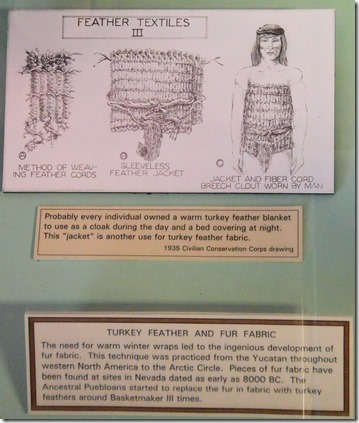 FEATHER TEXTILES
III
A
METHOD OF WEAV-
ING FEATHER CORDS.
B
SLEEVELESS
FEATHER JACKET
C
JACKET AND FIBER CORD
BREECH CLOUT WORN BY MAN
Probably every individual owned a warm turkey feather blanket
to use as a cloak during the day and a bed covering at night.
This "jacket" is another use for turkey feather fabric.
1935 Civilian Conservation Corps drawing
TURKEY FEATHER AND FUR FABRIC
The need for warm winter wraps led to the ingenious development of
fur fabric. This technique was practiced from the Yucatan throughout
western North America to the Arctic Circle. Pieces of fur fabric have
been found at sites in Nevada dated as early as 8000 BC. The
Ancestral Puebloans started to replace the fur in fabric with turkey
feathers around Basketmaker III times.